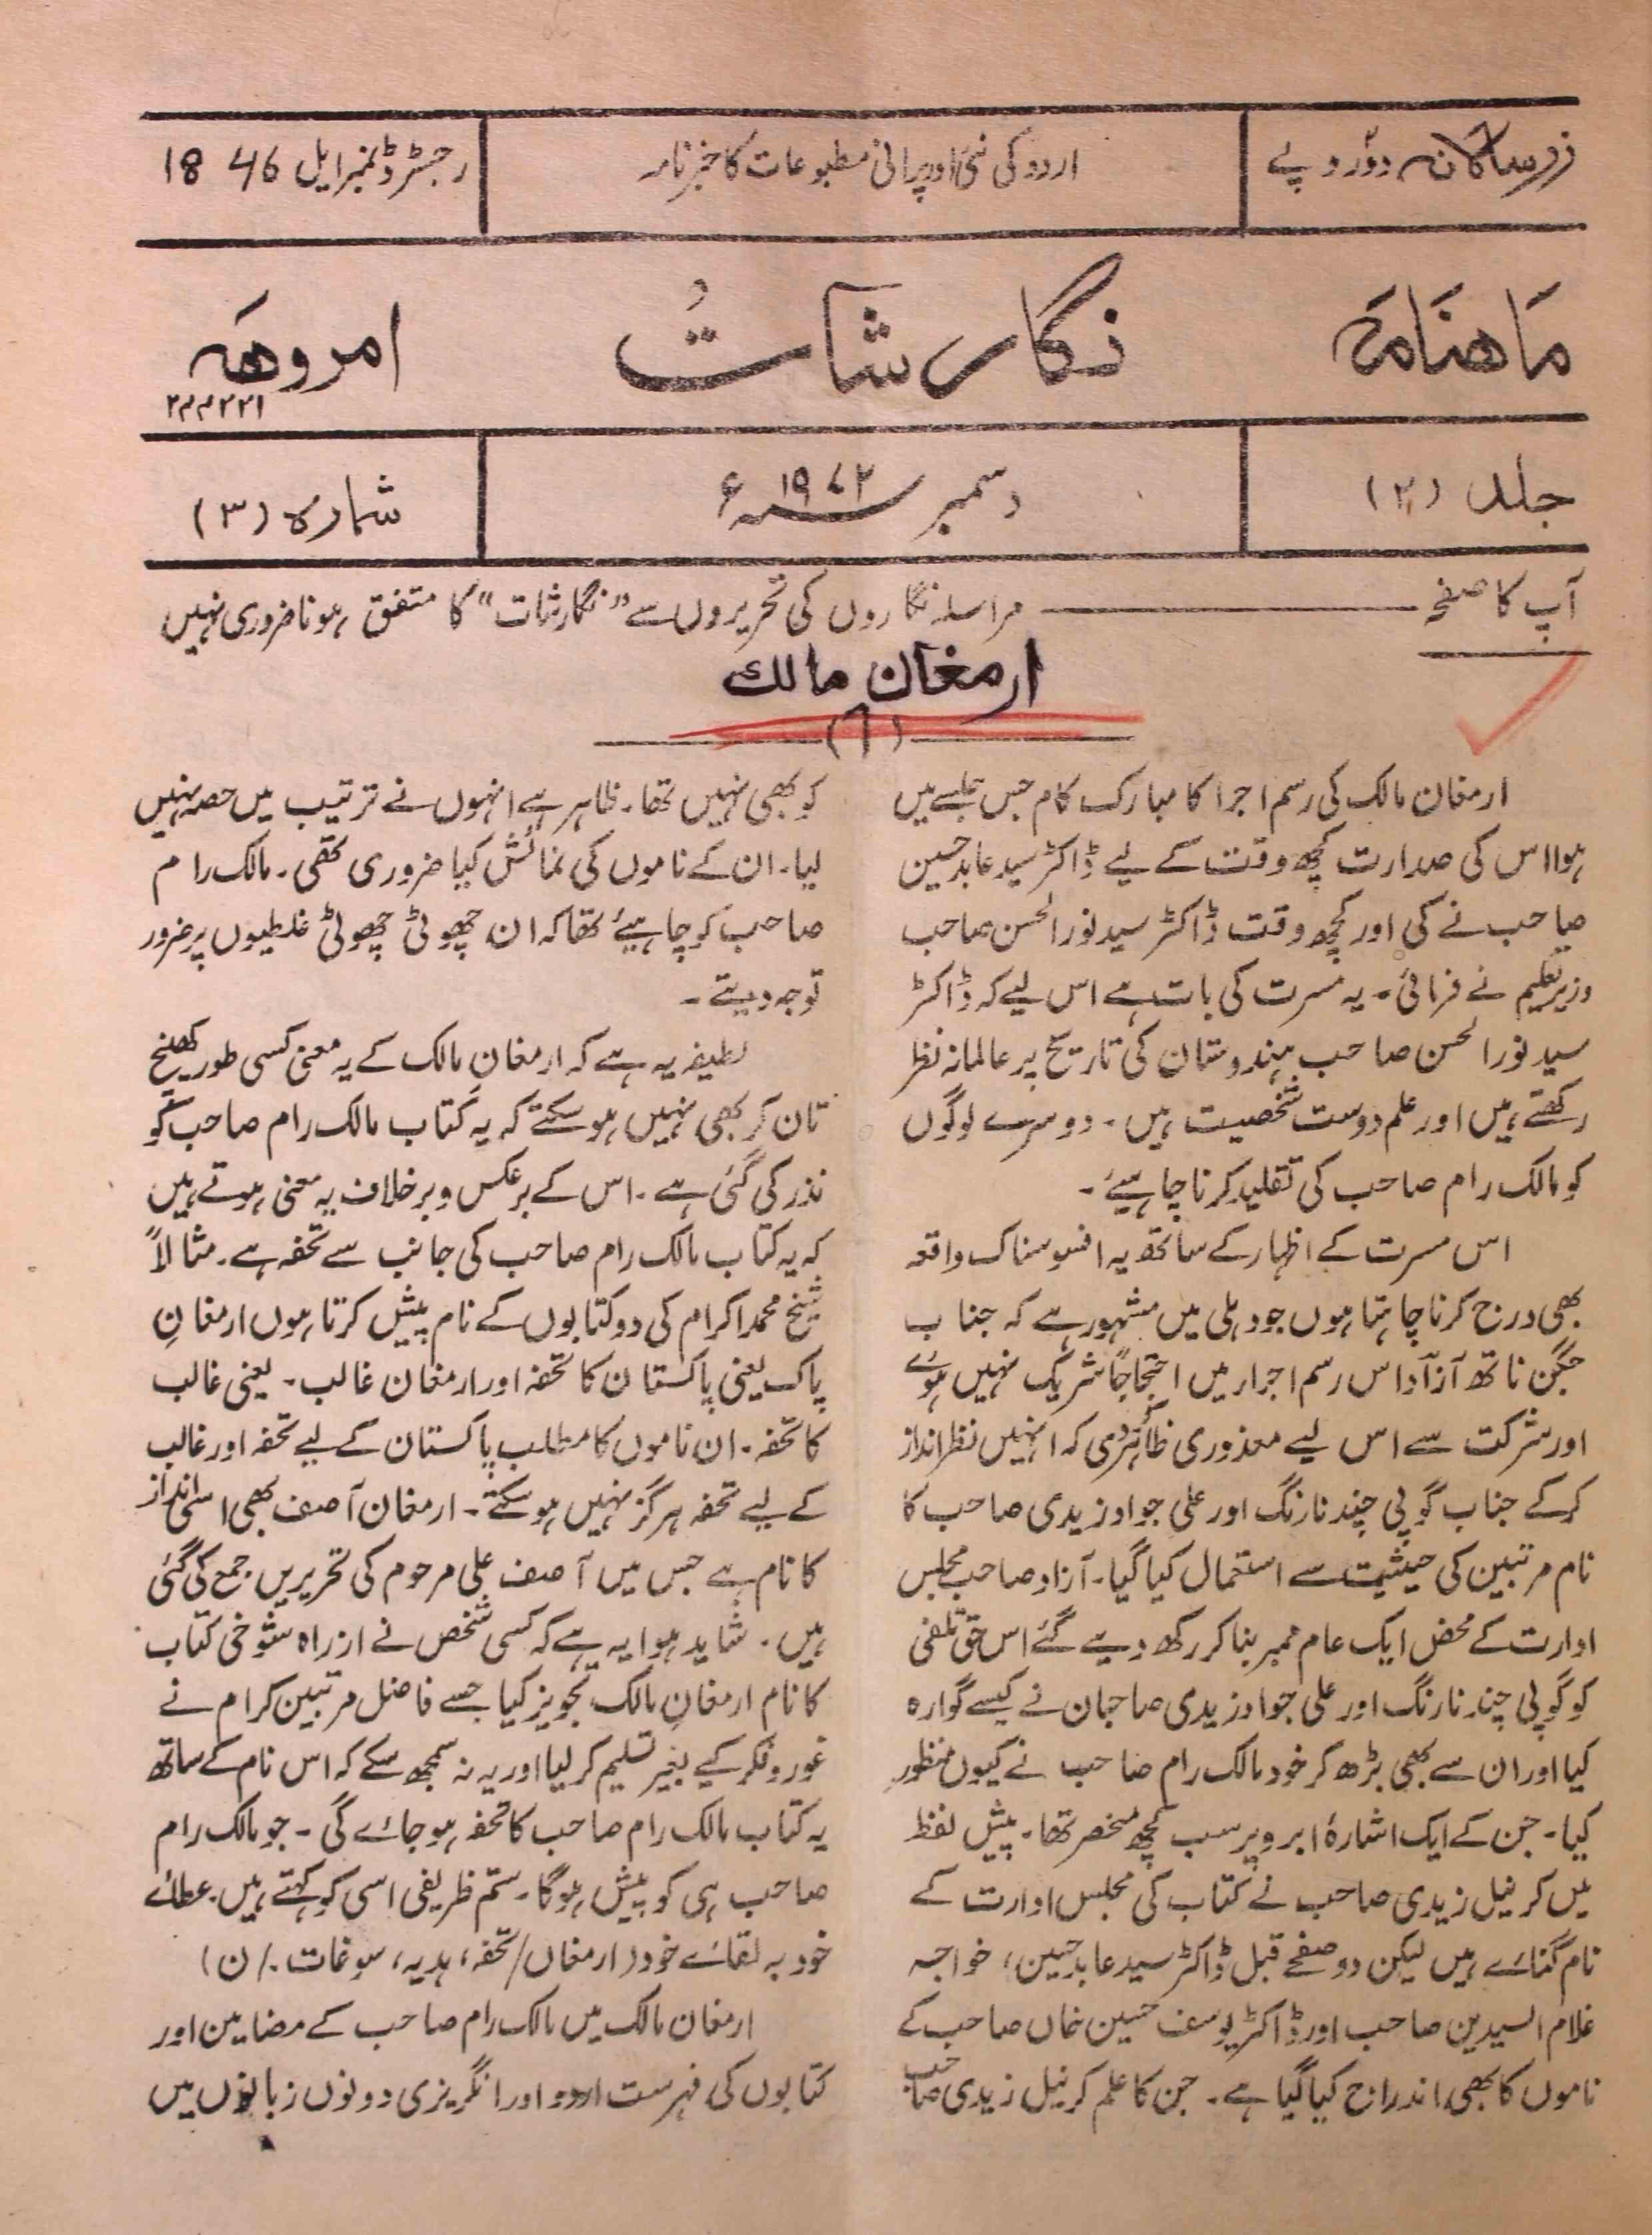 زر سالانہ دو روپے
اردو کی نئی اور پرانی مطبوعات کا خبر نامہ
رجسٹرڈ نمبر ایل 46 18
ماہنامہ
نگارشات
امروہہ
۲۴۴۲۲۱
جلد (۲)
دسمبر ۱۹۷۲ء
شمارہ (۳)
آپ کا صفحہ
مراسلہ نگاروں کی تحریروں سے ”نگارشات“ کا متفق ہونا ضروری نہیں
ارمغان مالک
(۶)
ارمغان مالک کی رسم اجرا کا مبارک کام جس جلسے میں
ہوا اس کی صدارت کچھ وقت کے لیے ڈاکٹر سید عابد حسین
صاحب نے کی اور کچھ وقت ڈاکٹر سید نورالحسن صاحب
وزیر تعلیم نے فرمائی۔ یہ مسرت کی بات ہے اس لیے کہ ڈاکٹر
سید نورالحسن صاحب ہندوستان کی تاریخ پر عالمانہ نظر
رکھتے ہیں اور علم دوست شخصیت ہیں۔ دوسرے لوگوں
کو مالک رام صاحب کی تقلید کرنا چاہیئے۔
اس مسرت کے اظہار کے ساتھ یہ افسوسناک واقعہ
بھی درج کرنا چاہتا ہوں جو دہلی میں مشہور ہے کہ جناب
جگن ناتھ آزاد اس رسم اجرار میں احتجاجاً شریک نہیں ہوے
اور شرکت سے اس لیے معذوری ظاہر کردی کہ انہیں نظر انداز
کرکے جناب گوپی چند نارنگ اور علی جواد زیدی صاحب کا
نام مرتبین کی حیثیت سے استعمال کیا گیا۔ آزاد صاحب مجلس
ادارت کے محض ایک عام ممبر بنا کر رکھ دیے گئے اس حق تلفی
کو گوپی چند نارنگ اور علی جواد زیدی صاحبان نے کیسے گوارہ
کیا اور ان سے بھی بڑھ کر خود مالک رام صاحب نے کیوں منظور
کیا۔ جن کے ایک اشارۂ ابرو پر سب کچھ منحصر تھا۔ پیش لفظ
میں کرنیل زیدی صاحب نے کتاب کی مجلس ادارت کے
نام گنائے ہیں لیکن دو صفحے قبل ڈاکٹر سید عابد حسین، خواجہ
غلام السیدین صاحب اور ڈاکٹر یوسف حسین خاں صاحب کے
ناموں کا بھی اندراج کیا گیا ہے۔ جن کا علم کرنیل زیدی صاحب
کو بھی نہیں تھا۔ ظاہر ہے انہوں نے ترتیب میں حصہ نہیں
لیا۔ ان کے ناموں کی نمائش کیا ضروری تھی۔ مالک رام
صاحب کو چاہیئے تھا کہ ان چھوٹی چھوٹی غلطیوں پر ضرور
توجہ دیتے۔
لطیفہ یہ ہے کہ ارمغان مالک کے یہ معنی کسی طور کھینچ
تان کر بھی نہیں ہو سکتے کہ یہ کتاب مالک رام صاحب کو
نذر کی گئی ہے۔ اس کے برعکس و برخلاف یہ معنی ہوتے ہیں
کہ یہ کتاب مالک رام صاحب کی جانب سے تحفہ ہے۔ مثالاً
شیخ محمد اکرام کی دو کتابوں کے نام پیش کرتا ہوں ارمغانِ
پاک یعنی پاکستان کا تحفہ اور ارمغان غالب۔ یعنی غالب
کا تحفہ۔ ان ناموں کا مطلب پاکستان کے لیے تحفہ اور غالب
کے لیے تحفہ ہرگز نہیں ہو سکتے۔ ارمغان آصف بھی اسی انداز
کا نام ہے جس میں آصف علی مرحوم کی تحریریں جمع کی گئی
ہیں۔ شاید ہوا یہ ہے کہ کسی شخص نے از راہ شوخی کتاب
کا نام ارمغانِ مالک تجویز کیا جسے فاضل مرتبین کرام نے
غور و فکر کیے بغیر تسلیم کر لیا اور یہ نہ سمجھ سکے کہ اس نام کے ساتھ
یہ کتاب مالک رام صاحب کا تحفہ ہو جائے گی۔ جو مالک رام
صاحب ہی کو پیش ہوگا۔ ستم ظریفی اسی کو کہتے ہیں۔ عطائے
خود بہ لقائے خود (ارمغان/تحفہ، ہدیہ، سوغات۔/ن)
ارمغان مالک میں مالک رام صاحب کے مضامین اور
کتابوں کی فہرست اردو اور انگریزی دونوں زبانوں میں